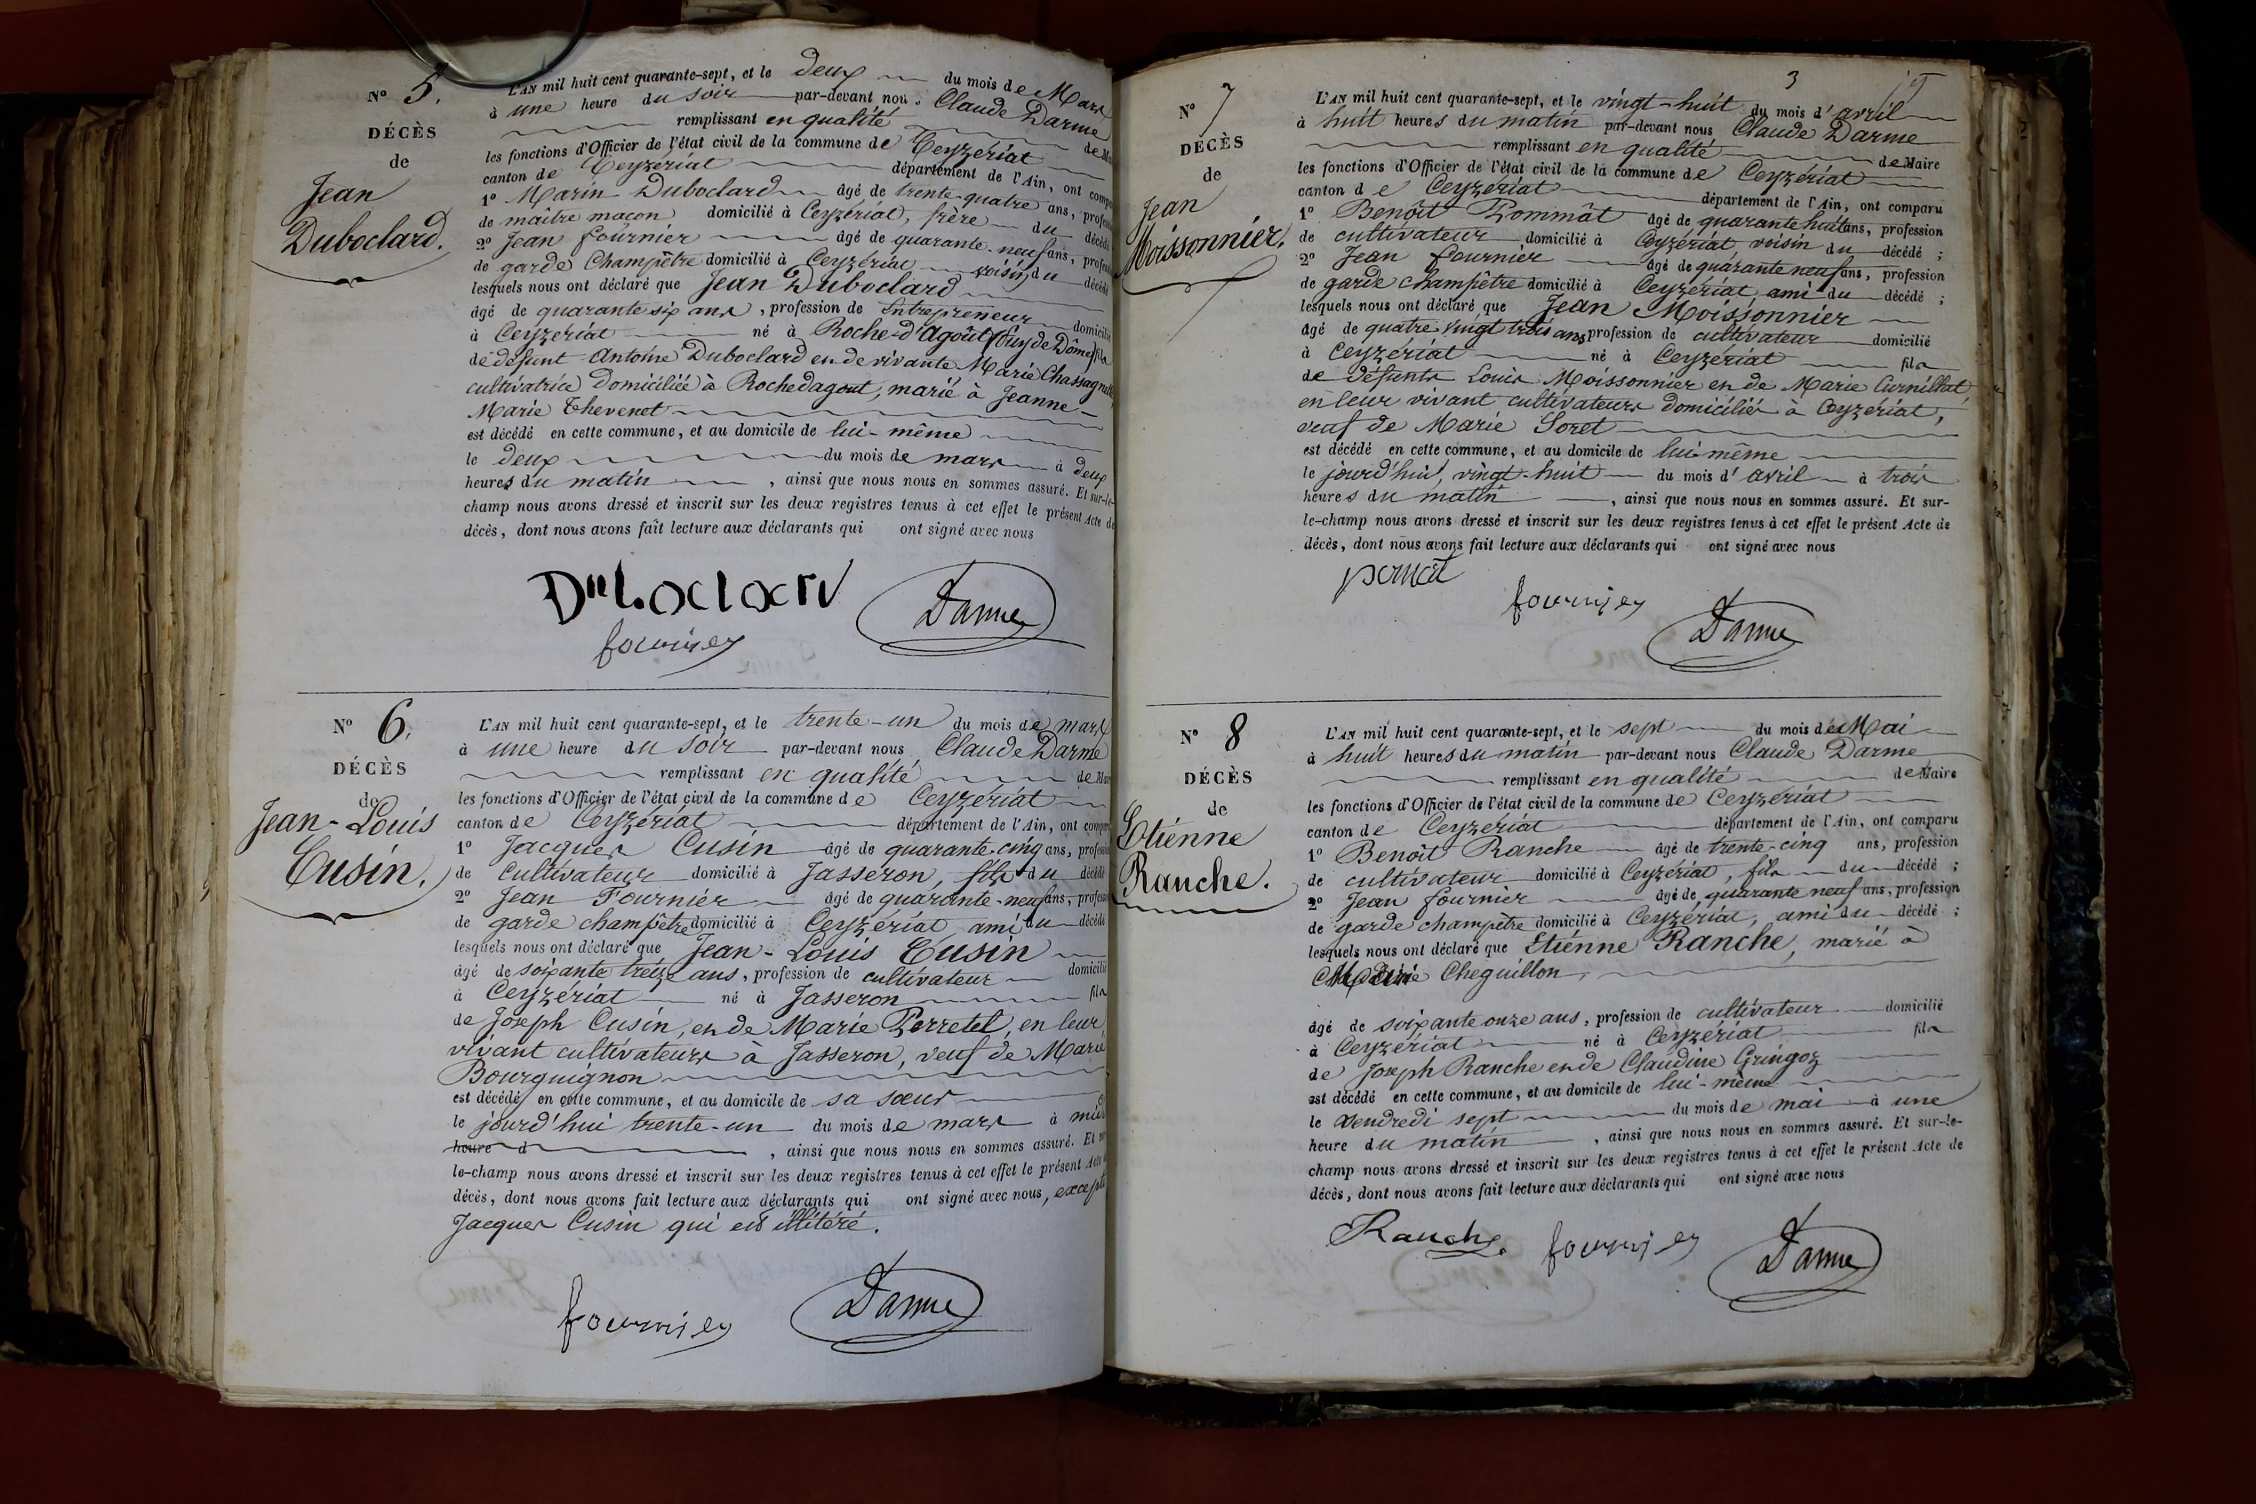 N° 5.
DÉCÈS
de
Jean
Duboclard.
L'AN mil huit cent quarante-sept, et le deux du mois de Mars
à une heure du soir par-devant nous Claude Darme
remplissant en qualité de
les fonctions d'Officier de l'état civil de la commune de Ceyzeriat
canton de Ceyzeriat département de l'Ain, ont
1° Marin Duboclard âgé de trente-quatre ans,
de maître maçon domicilié à Ceyzériat, frère du décédé
2° Jean fournier âgé de quarante-neuf ans,
de garde Champêtre domicilié à Ceyzériat voisin du décédé
lesquels nous ont déclaré que Jean Duboclard
âgé de quarante six ans, profession de Entrepreneur domicilié
à Ceyzériat né à Roche-d'Agoût (Puy de Dôme) fils
de défunt Antoine Duboclard et de vivante Marie
cultivatrice domiciliée à Rochedagout, marié à Jeanne-
Marie Thevenet
est décédé en cette commune, et au domicile de lui-même
le deux du mois de mars à deux
heures du matin, ainsi que nous nous en sommes assuré. Et sur-le-
champ nous avons dressé et inscrit sur les deux registres tenus à cet effet le présent Acte de
décès, dont nous avons fait lecture aux déclarants qui ont signé avec nous
Duboclard
fournier
Darme
N° 6.
DÉCÈS
de
Jean-Louis
Cusin.
L'AN mil huit cent quarante-sept, et le trente-un du mois de mars
à une heure du soir par-devant nous Claude Darme
remplissant en qualité de
les fonctions d'Officier de l'état civil de la commune de Ceyzériat
canton de Ceyzériat département de l'Ain, ont
1° Jacques Cusin âgé de quarante-cinq ans,
de cultivateur domicilié à Jasseron, fils du décédé
2° Jean Fournier âgé de quarante-neuf ans,
de garde champêtre domicilié à Ceyzériat, ami du décédé
lesquels nous ont déclaré que Jean-Louis Cusin
âgé de soixante treize ans, profession de cultivateur domicilié
à Ceyzériat né à Jasseron fils
de Joseph Cusin, et de Marie Perretel, en leur
vivant cultivateurs à Jasseron, veuf de Marie
Bourguignon
est décédé en cette commune, et au domicile de sa sœur
le jourd'hui trente-un du mois de mars à midi
heure d, ainsi que nous nous en sommes assuré. Et sur-
le-champ nous avons dressé et inscrit sur les deux registres tenus à cet effet le présent Acte
décès, dont nous avons fait lecture aux déclarants qui ont signé avec nous, excepté
Jacques Cusin qui est illitéré.
fournier
Darme
3
N° 7
DÉCÈS
de
Jean
Moissonnier.
L'AN mil huit cent quarante-sept, et le vingt-huit du mois d'avril
à huit heures du matin par-devant nous Claude Darme
remplissant en qualité de Maire
les fonctions d'Officier de l'état civil de la commune de Ceyzériat
canton de Ceyzériat département de l'Ain, ont comparu
1° Benoît Pommât âgé de quarante huit ans, profession
de cultivateur domicilié à Ceyzériat voisin du décédé ;
2° Jean fournier âgé de quarante neuf ans, profession
de garde champêtre domicilié à Ceyzériat, ami du décédé ;
lesquels nous ont déclaré que Jean Moissonnier
âgé de quatre-vingt trois ans profession de cultivateur domicilié
à Ceyzériat né à Ceyzériat fils
de défunts Louis Moissonnier et de Marie Curnillat,
en leur vivant cultivateurs domiciliés à Ceyzériat,
veuf de Marie Soret
est décédé en cette commune, et au domicile de lui-même
le jourd'hui, vingt-huit du mois d'avril à trois
heures du matin, ainsi que nous nous en sommes assuré. Et sur-
le-champ nous avons dressé et inscrit sur les deux registres tenus à cet effet le présent Acte de
décès, dont nous avons fait lecture aux déclarants qui ont signé avec nous
fournier
Darme
N° 8
DÉCÈS
de
Etiénne
Ranche.
L'AN mil huit cent quarante-sept, et le sept du mois de Mai
à huit heures du matin par-devant nous Claude Darme
remplissant en qualité de Maire
les fonctions d'Officier de l'état civil de la commune de Ceyzériat
canton de Ceyzériat département de l'Ain, ont comparu
1° Benoît Ranche âgé de trente-cinq ans, profession
de cultivateur domicilié à Ceyzériat, fils du décédé ;
2° Jean fournier âgé de quarante neuf ans, profession
de garde champêtre domicilié à Ceyzériat, ami du décédé ;
lesquels nous ont déclaré que Etiénne Ranche, marié à
Cheguillon,
âgé de soixante onze ans, profession de cultivateur domicilié
à Ceyzériat né à Ceyzériat fils
de Joseph Ranche et de Claudine Gringoz
est décédé en cette commune, et au domicile de lui-même
le Vendredi sept du mois de mai à une
heure du matin, ainsi que nous nous en sommes assuré. Et sur-le-
champ nous avons dressé et inscrit sur les deux registres tenus à cet effet le présent Acte de
décès, dont nous avons fait lecture aux déclarants qui ont signé avec nous
Ranche
fournier
Darme